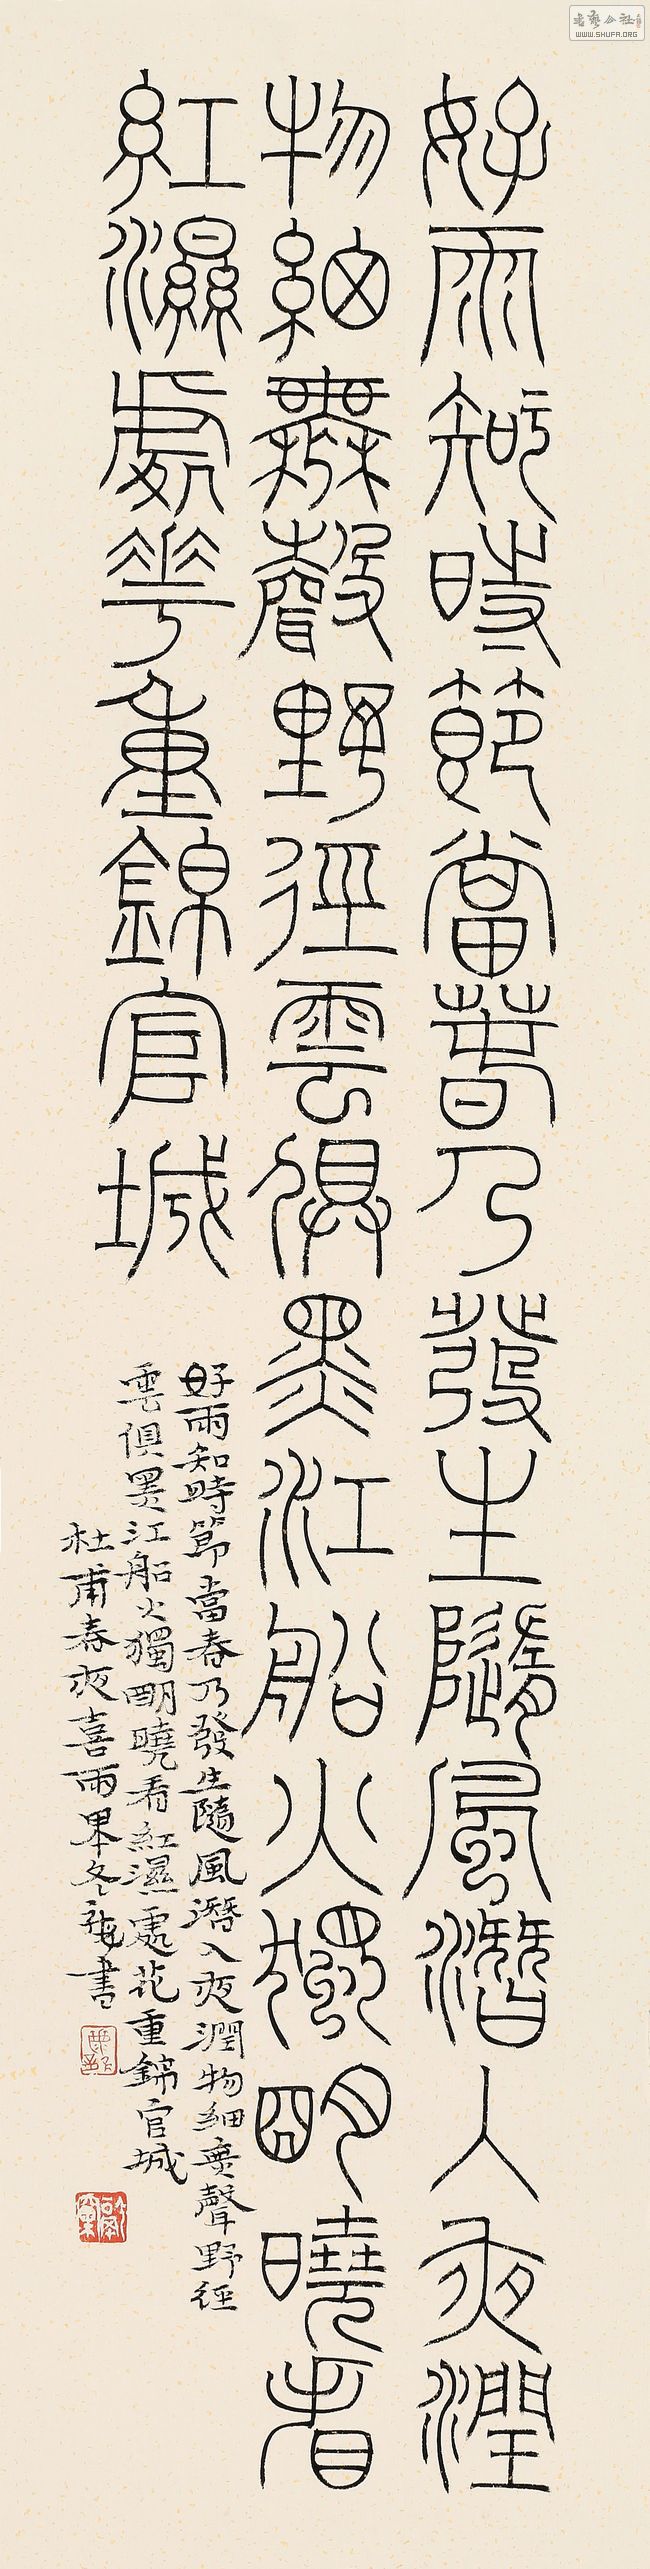 好雨知時節當萅乃發生隨風潛入夜潤
物細無聲野徑雲俱黑江船火獨朙曉看
紅濕處華重錦官城
好雨知時節當春乃發生隨風潛入夜潤物細無聲野徑
雲俱黑江船火獨朙曉看紅濕處花重錦官城
杜甫春夜喜雨畢冬龍書
WWW.SHUFA.ORG